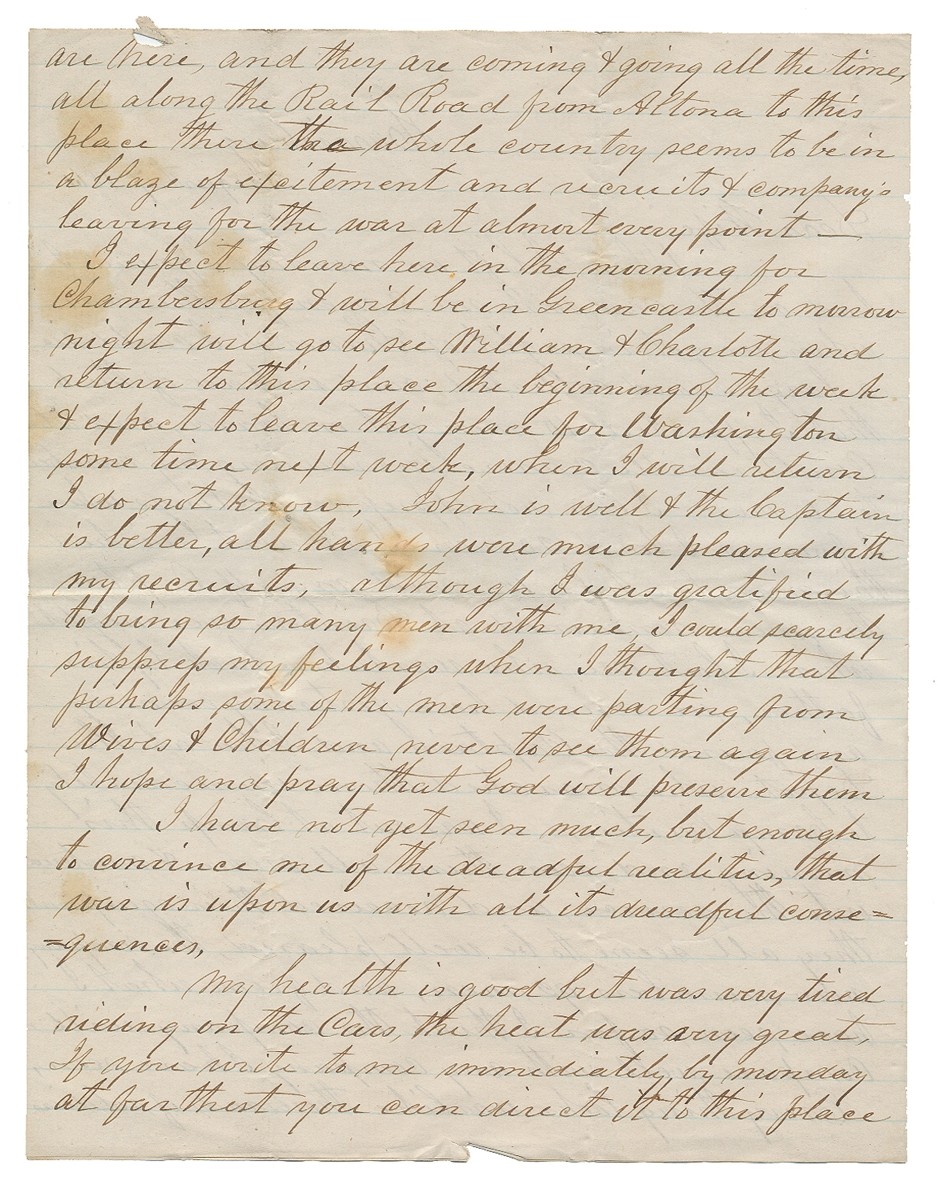 are here, and they are coming & going all the time,
all along the Rail Road from Altona to this
place there the whole country seems to be in
a blaze of excitement and recruits & company's
leaving for the war at almost every point —
I expect to leave here in the morning for
Chambersburg & will be in Greencastle to morrow
night will go to see William & Charlotte and
return to this place the beginning of the week
& expect to leave this place for Washington
some time next week, when I will return
I do not know, John is well & the Captain
is better, all hands were much pleased with
my recruits, although I was gratified
to bring so many men with me, I could scarcely
suppress my feelings when I thought that
perhaps some of the men were parting from
Wives & Children never to see them again
I hope and pray that God will preserve them
I have not yet seen much, but enough
to convince me of the dreadful realities, that
war is upon us with all its dreadful conse=
=quences,
My health is good but was very tired
riding on the Cars, the heat was very great,
If you write to me immediately, by monday
at farthest you can direct it to this place